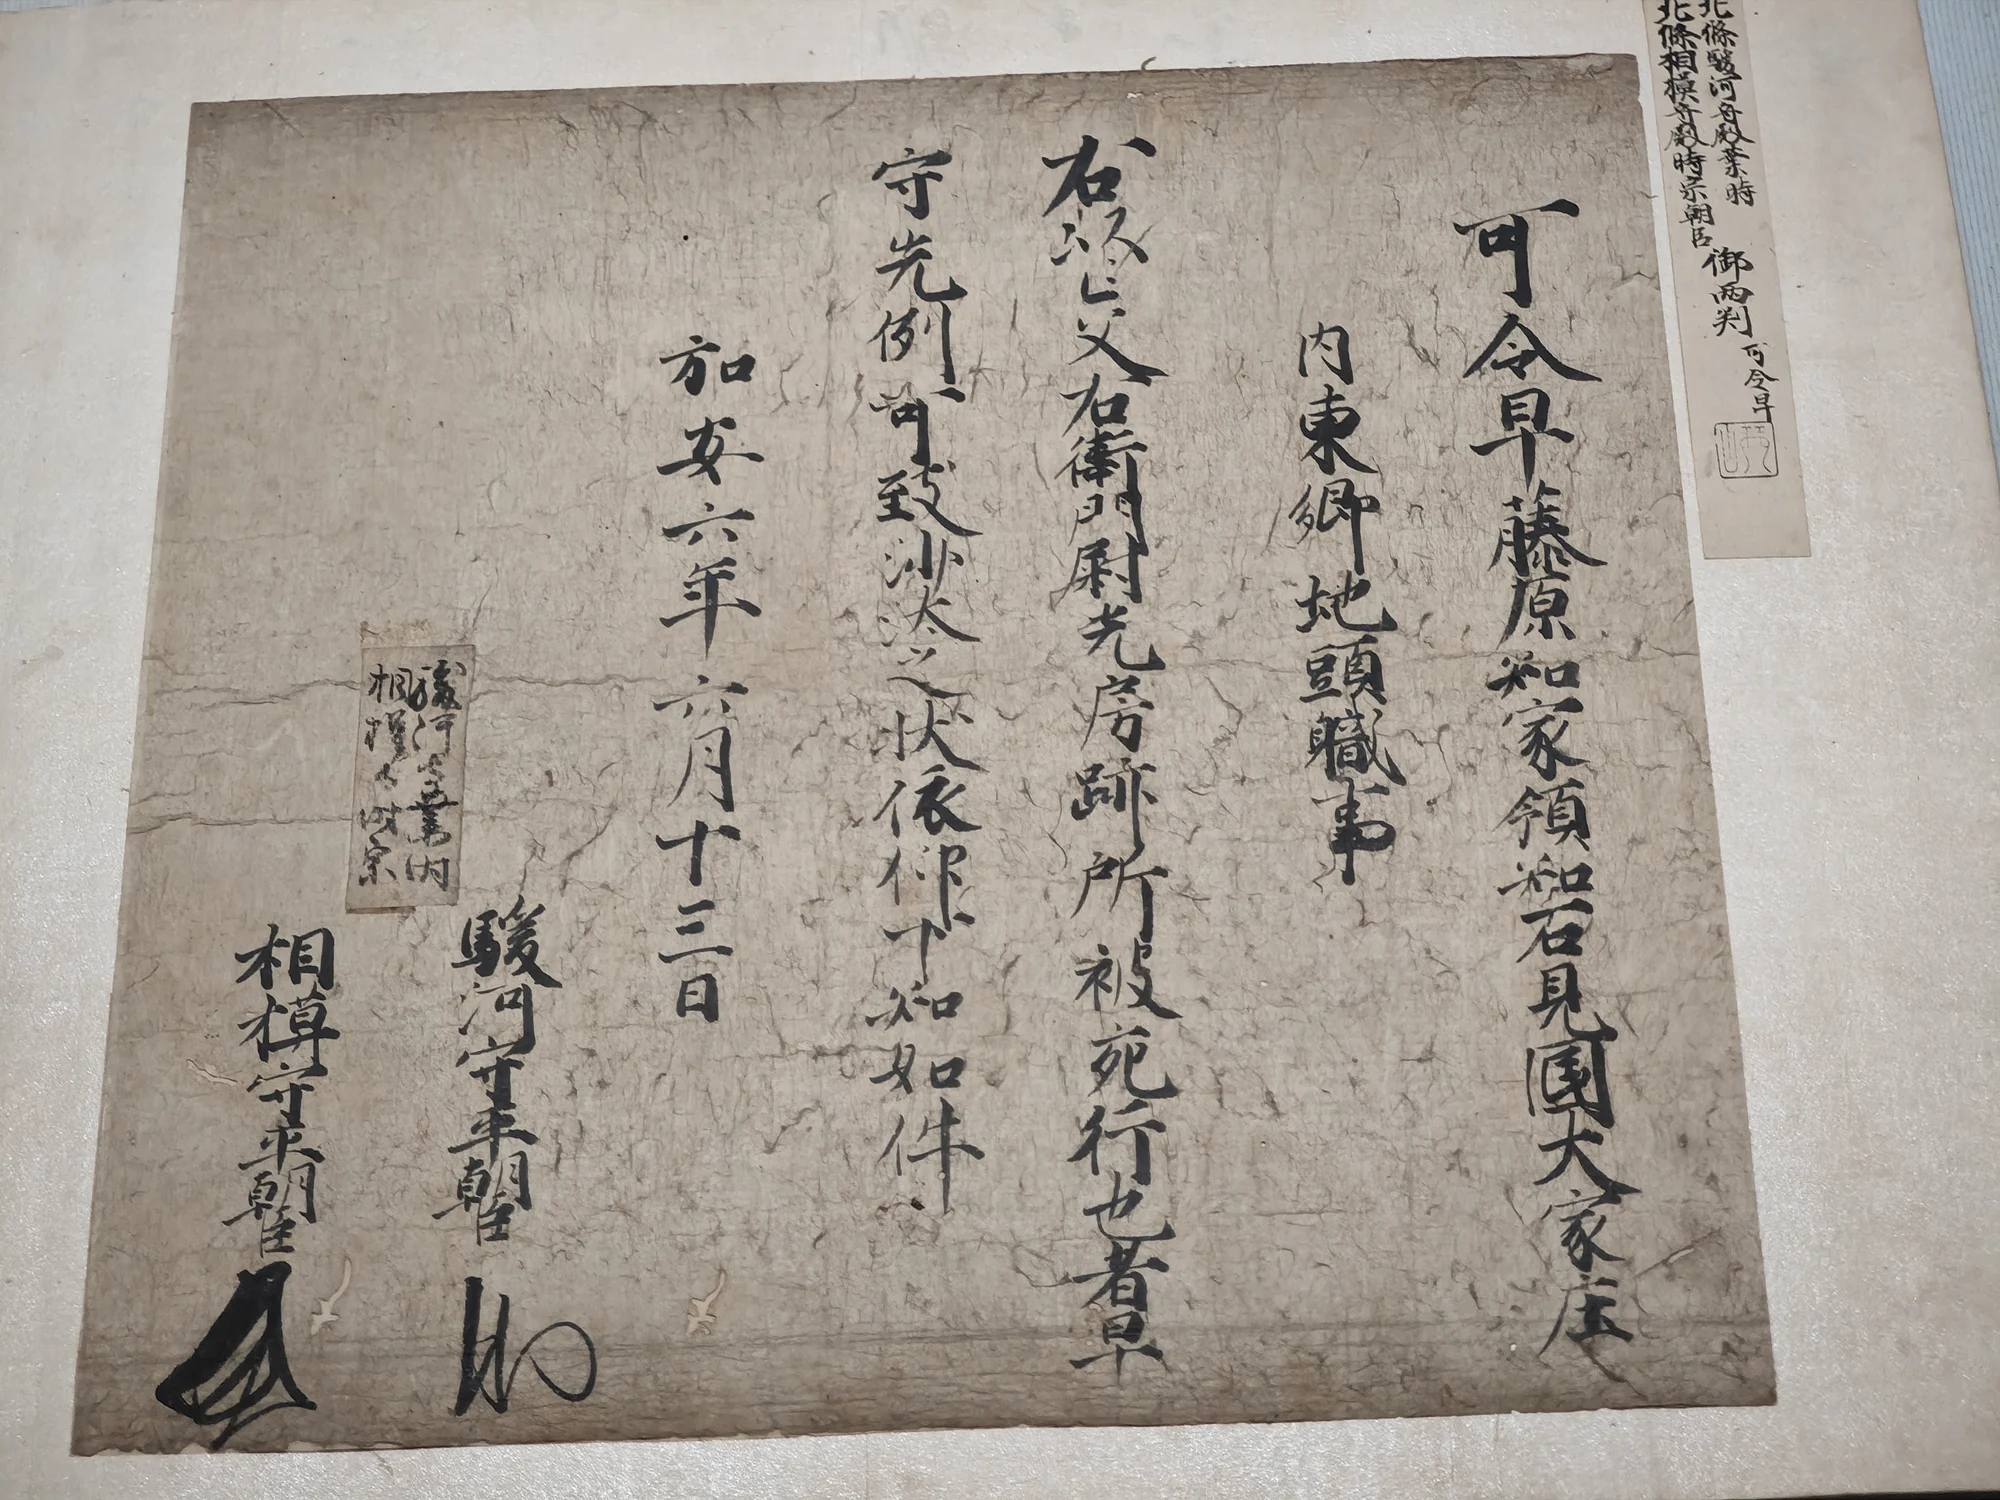 北條駿河守殿業時
北條相摸守殿時宗朝臣
御両判
可令早
可令早藤原知家領知石見國大家庄
内東郷地頭職事
右以亡父右衛門尉光房跡所被宛行也者早
守先例可致沙汰之状依仰下知如件
弘安六年六月十三日
駿河守平朝臣
相摸守平朝臣
駿河守業時
相摸守時宗